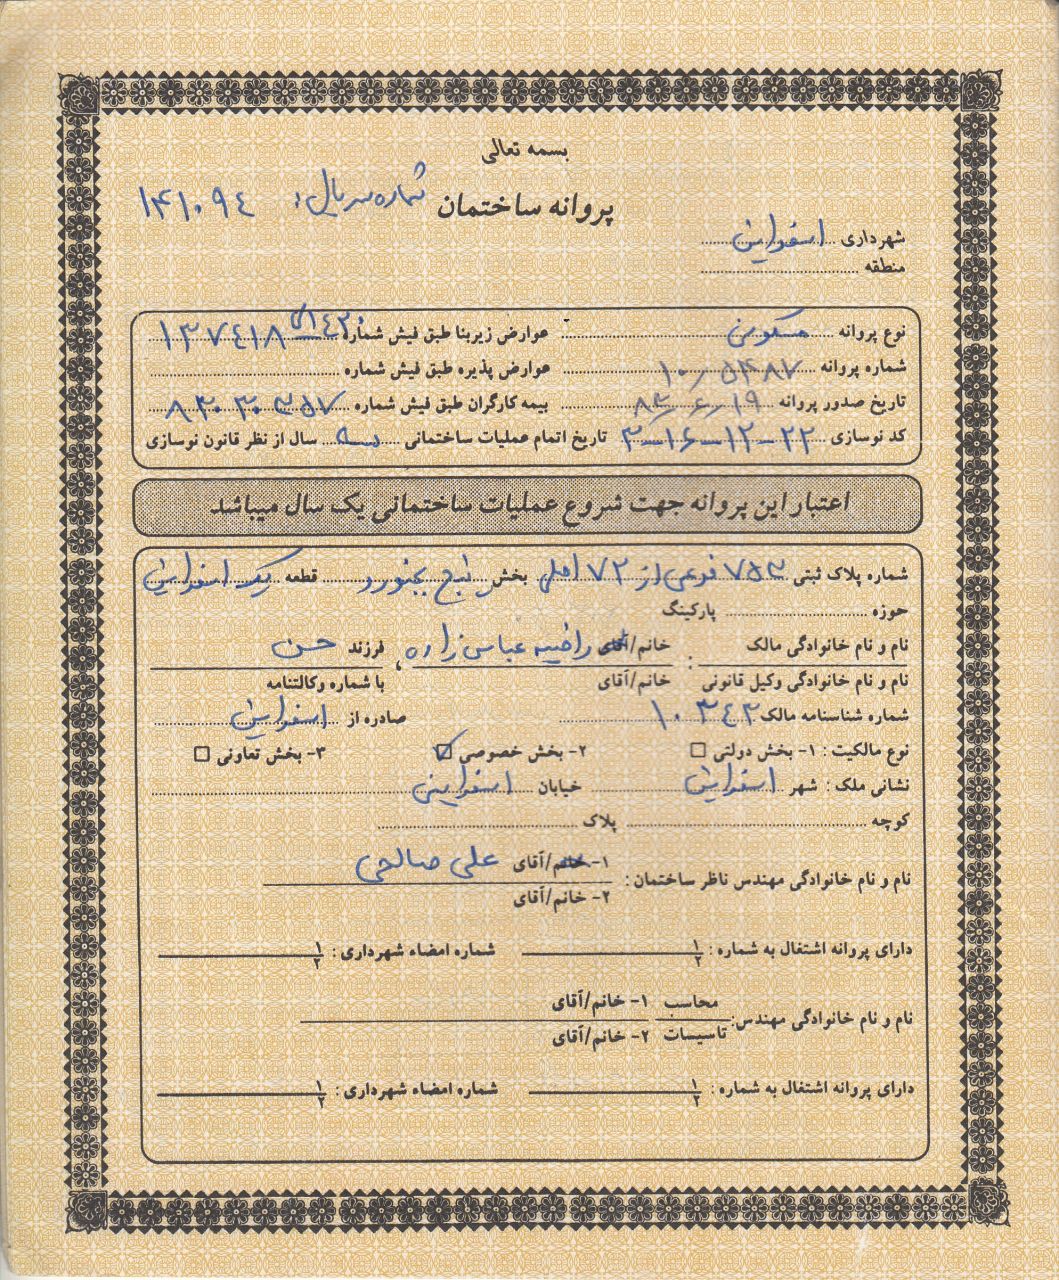 بسمه تعالی
پروانه ساختمان شماره سریال: ۱۴۱۰۹۴
شهرداری اسفراین
منطقه
نوع پروانه مسکونی عوارض زیربنا طبق فیش شماره ۱۳۷۴۱۸
شماره پروانه ۱۰/۵۴۸۷ عوارض پذیره طبق فیش شماره
تاریخ صدور پروانه ۸۳/۶/۱۹ بیمه کارگران طبق فیش شماره ۸۳۰۳۰۳۵۷
کد نوسازی ۳-۱۶-۱۲-۲۲ تاریخ اتمام عملیات ساختمانی سه سال از نظر قانون نوسازی
اعتبار این پروانه جهت شروع عملیات ساختمانی یک سال میباشد
شماره پلاک ثبتی ۷۵۳ فرعی از ۷۲ اصلی بخش پنج بجنورد قطعه یک اسفراین
حوزه پارکینگ
نام و نام خانوادگی مالک : خانم/آقای راضیه عباس زاده ، فرزند حسن
نام و نام خانوادگی وکیل قانونی خانم/آقای با شماره وکالتنامه
شماره شناسنامه مالک ۱۰۳۴۲ صادره از اسفراین
نوع مالکیت : ۱- بخش دولتی ☐ ۲- بخش خصوصی ☑ ۳- بخش تعاونی ☐
نشانی ملک : شهر اسفراین خیابان اسفراینی
کوچه پلاک
نام و نام خانوادگی مهندس ناظر ساختمان : ۱- خانم/آقای علی صالحی
۲- خانم/آقای
دارای پروانه اشتغال به شماره : ۱ ۲ شماره امضاء شهرداری : ۱ ۲
نام و نام خانوادگی مهندس: محاسب ۱- خانم/آقای
تاسیسات ۲- خانم/آقای
دارای پروانه اشتغال به شماره : ۱ ۲ شماره امضاء شهرداری : ۱ ۲